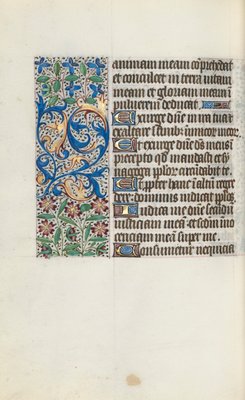 animam meam cōprehēdat
et conculcet in terra uitam
meam et gloriam meam ī
puluerem deducat.
Exurge dūe in ira tua ⁊
exaltare ī finib: inimicor meor.
Et exurge dūe ds̄ meus ī
precepto qd̄ mandasti et
sinagoga pplōr circūdabit te.
Et ppter hanc ī altū regre
dere: dominus iudicat pplos.
Iudica me dūe scd̄m
iusticiam meā et scd̄m ino
cenciam meā super me.
Consumetur nequicia